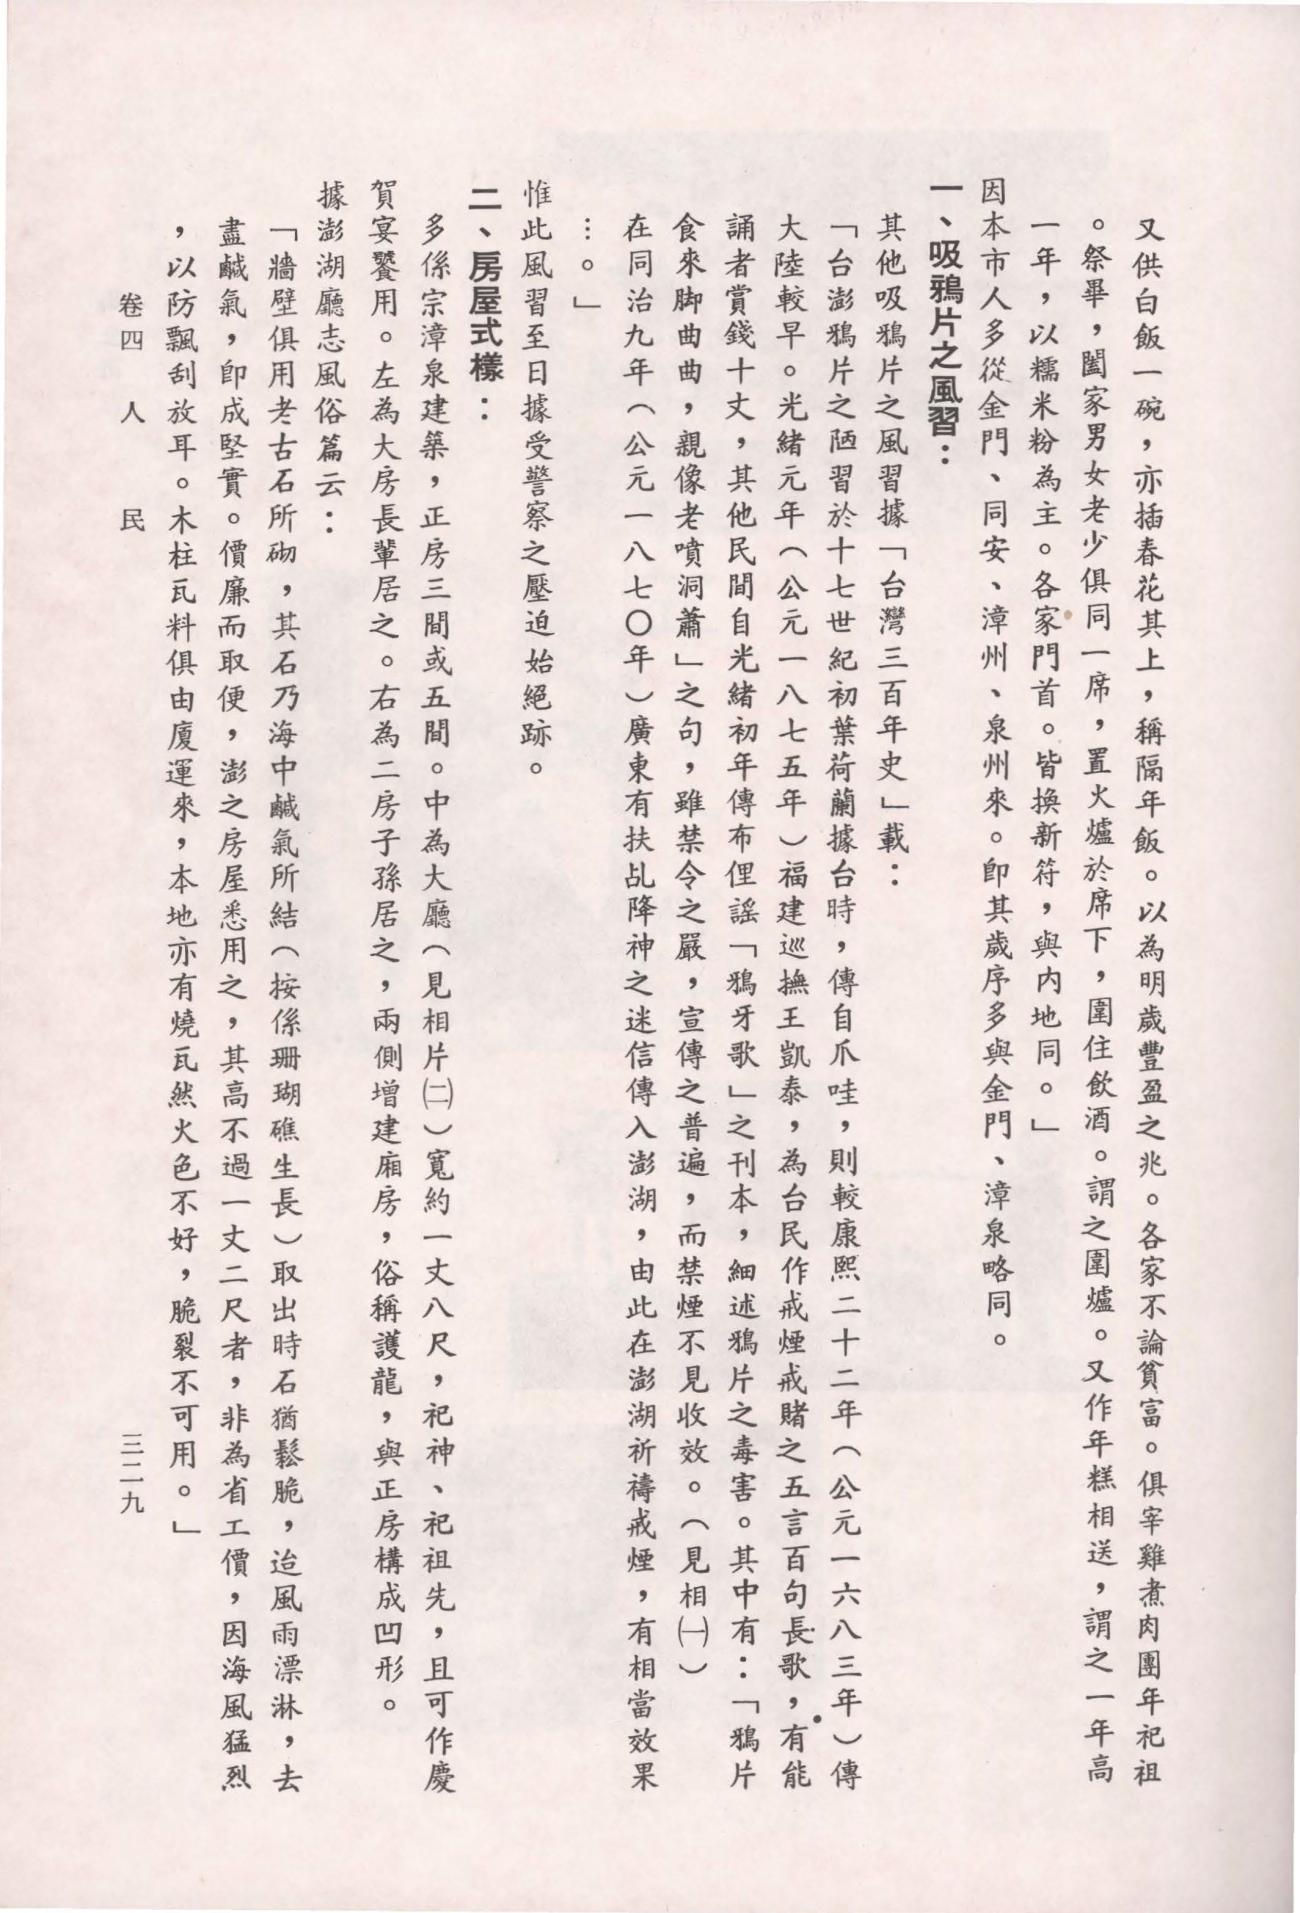 又供白飯一碗，亦插春花其上，稱隔年飯。以為明歲豐盈之兆。各家不論貧富。俱宰雞煮肉團年祀祖
。祭畢，闔家男女老少俱同一席，置火爐於席下，圍住飲酒。謂之圍爐。又作年糕相送，謂之一年高
一年，以糯米粉為主。各家門首。皆換新符，與內地同。」
因本市人多從金門、同安、漳州、泉州來。即其歲序多與金門、漳泉略同。
一、吸鴉片之風習：
其他吸鴉片之風習據「台灣三百年史」載：
「台澎鴉片之陋習於十七世紀初葉荷蘭據台時，傳自爪哇，則較康熙二十二年（公元一六八三年）傳
大陸較早。光緒元年（公元一八七五年）福建巡撫王凱泰，為台民作戒煙戒賭之五言百句長歌，有能
誦者賞錢十丈，其他民間自光緒初年傳布俚謠「鴉牙歌」之刊本，細述鴉片之毒害。其中有：「鴉片
食來脚曲曲，親像老噴洞蕭」之句，雖禁令之嚴，宣傳之普遍，而禁煙不見收效。（見相㈠）
在同治九年（公元一八七〇年）廣東有扶乩降神之迷信傳入澎湖，由此在澎湖祈禱戒煙，有相當效果
…。」
惟此風習至日據受警察之壓迫始絕跡。
二、房屋式樣：
多係宗漳泉建築，正房三間或五間。中為大廳（見相片㈡）寬約一丈八尺，祀神、祀祖先，且可作慶
賀宴饗用。左為大房長輩居之。右為二房子孫居之，兩側增建廂房，俗稱護龍，與正房構成凹形。
據澎湖廳志風俗篇云：
「牆壁俱用老古石所砌，其石乃海中鹹氣所結（按係珊瑚礁生長）取出時石猶鬆脆，迨風雨漂淋，去
盡鹹氣，即成堅實。價廉而取便，澎之房屋悉用之，其高不過一丈二尺者，非為省工價，因海風猛烈
，以防飄刮放耳。木柱瓦料俱由廈運來，本地亦有燒瓦然火色不好，脆裂不可用。」
卷四　人　民
三二九